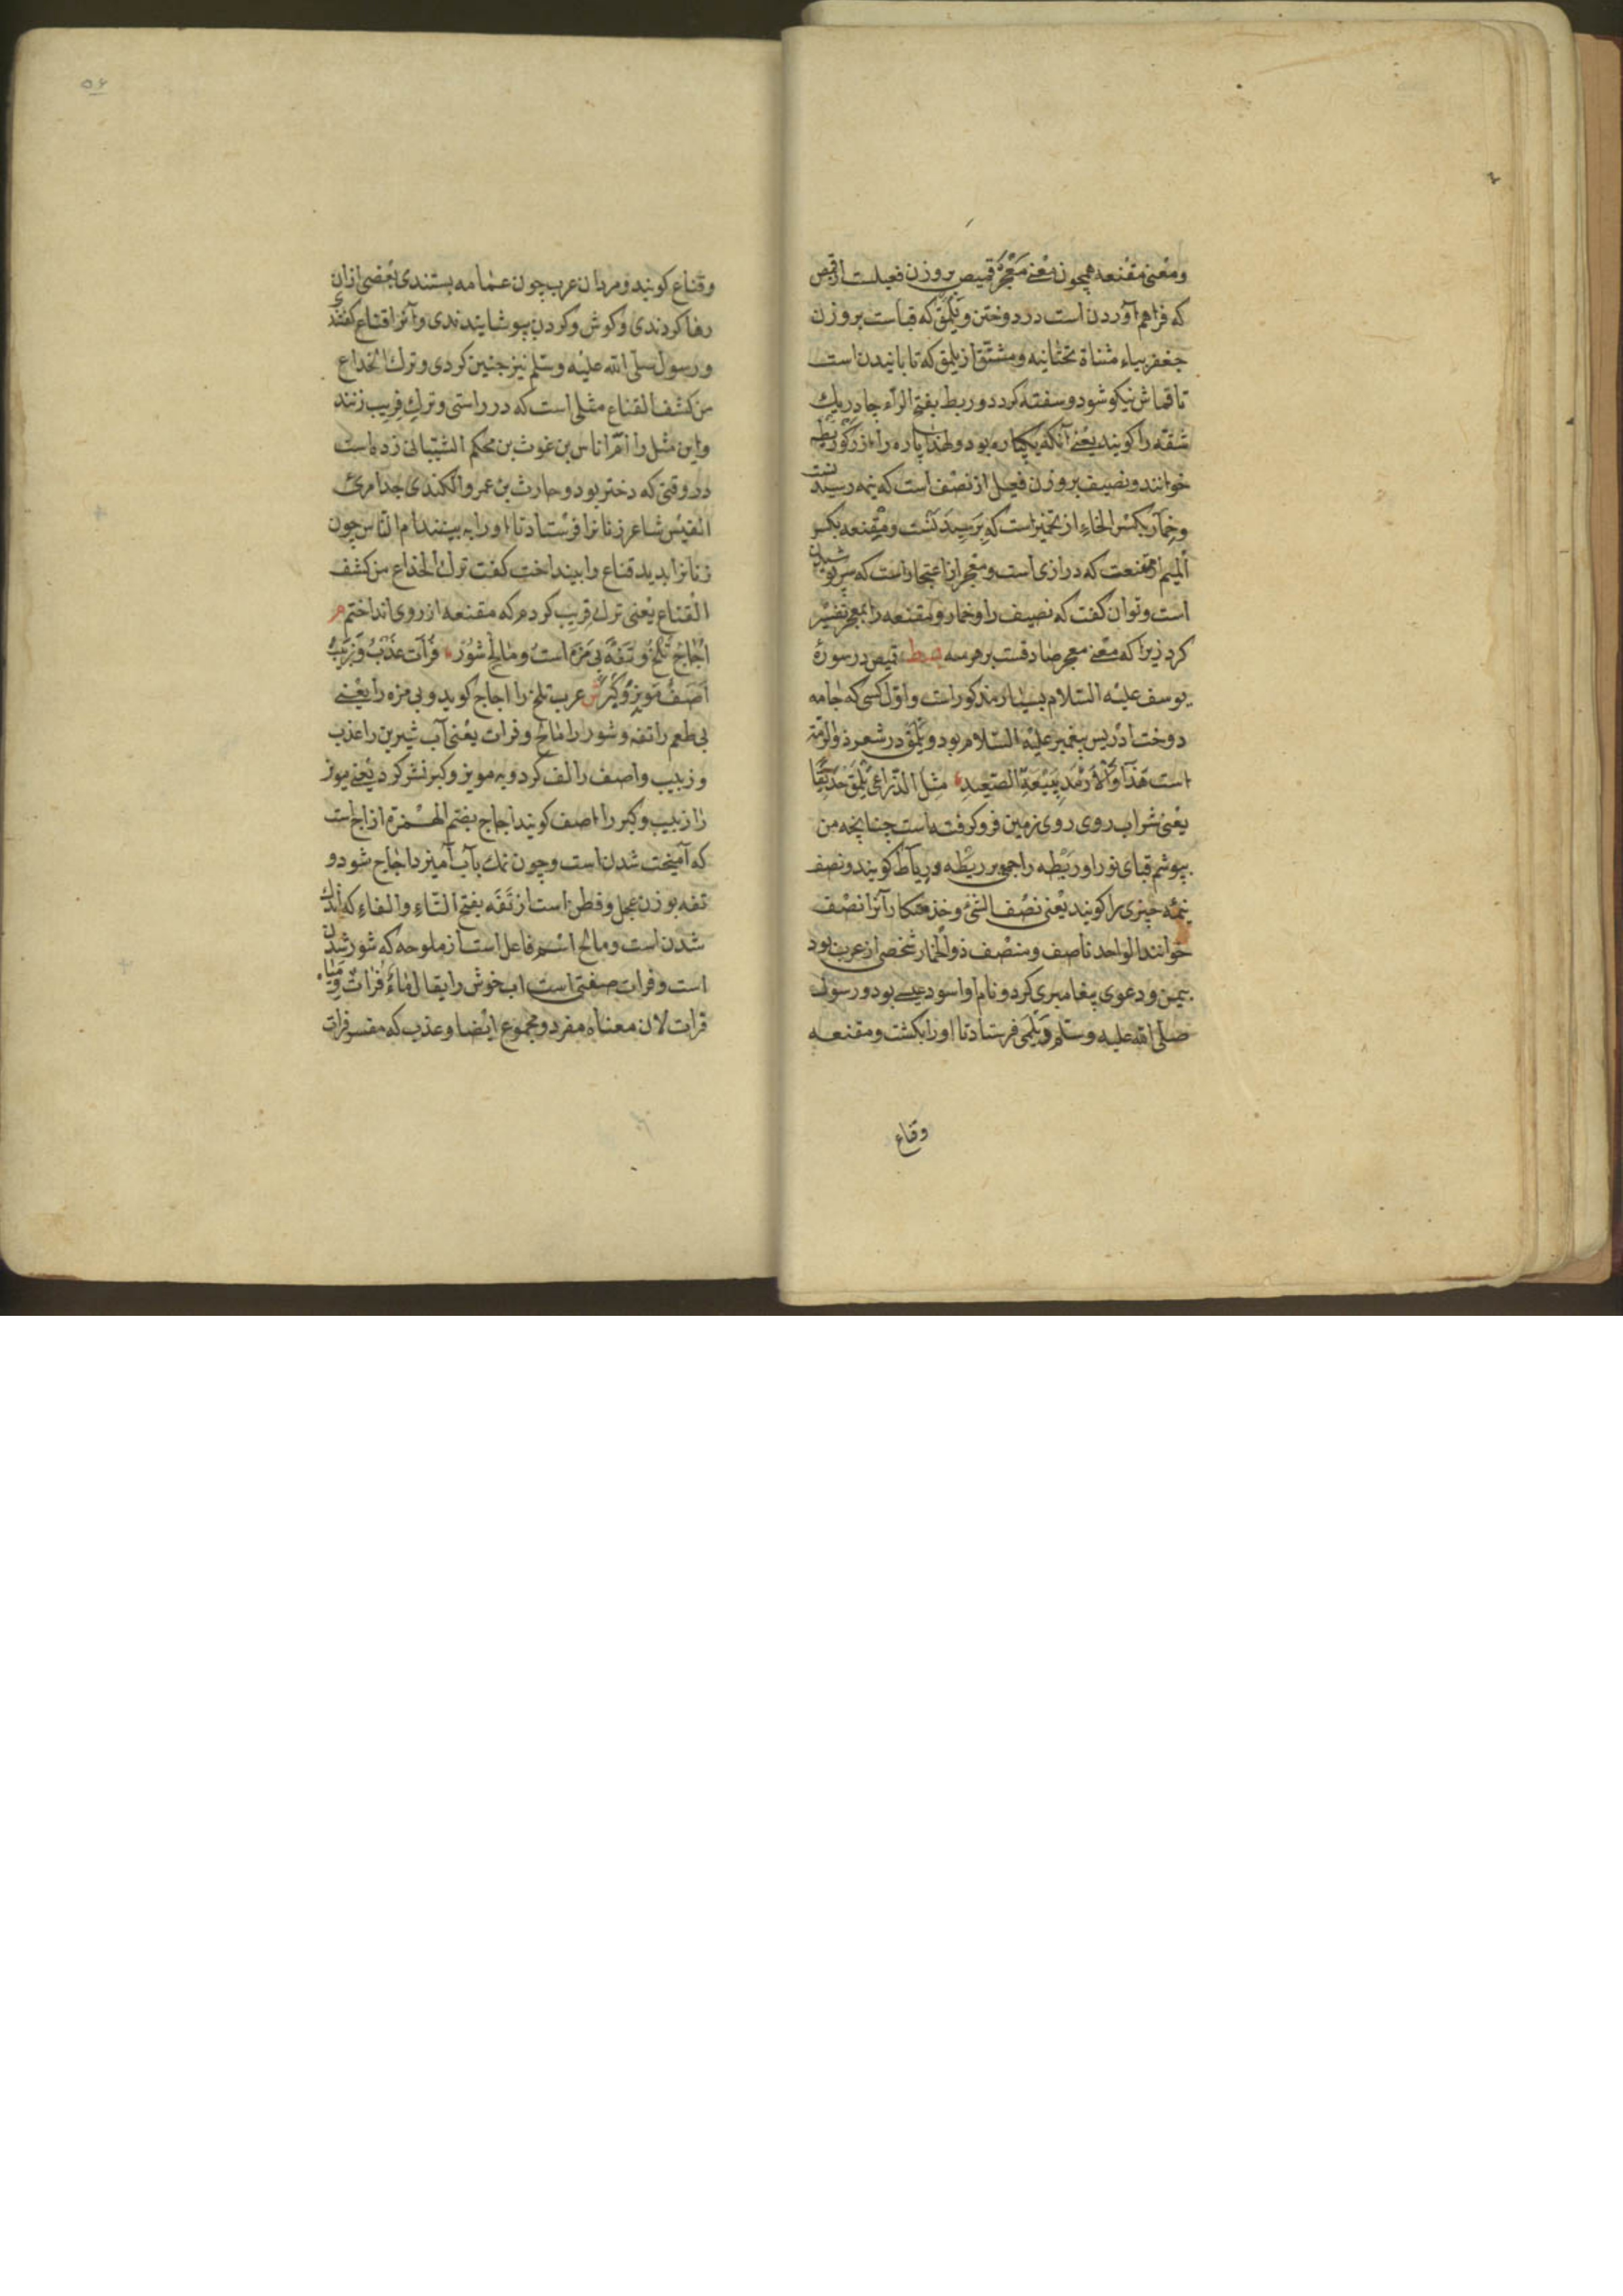 ومعنی مقنعه همچون معنی معجر قمیص بروزن فعیلست از قمص
که فراهم آوردن است در دوختن و یلمق که قباست بروزن
جعفر بیاء مثناة تحتانیه ومشتق از یلمق که تابانیدن است
تا قماش نیکو شود و سفته کردد وریط بفتح الراء جادر یک
شقه را کویند یعنی آنکه یکپاره بود ولهذا پاره را از رکو ریطه
خوانند ونصیف بروزن فعیل از نصف است که نیمه رسیدنست
وخمار بکسر الخاء از تخمیر است که و مقنعه بکسر
المیم از قنعت که درازی است ومعجر از اعتجار است که سرپوشیدن
است وتوان کفت که نصیف را وخمار ومقنعه را بمعجر تفسیر
کرد زیرا که معنی معجر صادقست بر هر سه قمیص در سورهٔ
یوسف علیه السلام بسیار مذکور است واول کسی که جامه
دوخت ادریس پیغمبر علیه السلام بود و یلمق در شعر ذوالرمه
است
یعنی شراب روی روی زمین فرو کرفته است چنانچه من
بپوشم قبای نو را وریطه را جمع بر ریطه وریاط کویند ونصف
نیمه چیزی را کویند یعنی نصف الشیء وخدمتکار آنرا نصف
خوانند الواحد ناصف ومنصف ذوالخمار شخصی از عرب بود
بیمن ودعوی پیغامبری کرد ونام او اسود عیسی بود ورسول
صلی الله علیه وسلم ویلمی فرستاد تا اورا بکشت ومقنعه
وقناع
۵۶
وقناع کویند ومردان عرب چون عمامه بستندی بعضی ازان
رها کردندی وکوش وکردن بپوشانیدندی وآنرا قناع کفتندی
ورسول صلی الله علیه وسلم نیز جنین کردی وترک الخداع
من کشف القناع مثلی است که در راستی وترک فریب زنند
واین مثل را ام اناس بن غوث بن محکم الشیبانی زده است
در وقتی که دختر بود وحارث بن عمرو الکندی جد امرئ
القیس شاعر زنانرا فرستاد تا اورا به بینند ام الناس چون
زنانرا بدید قناع وا بینداخت کفت ترک الخداع من کشف
القناع یعنی ترک فریب کردم که مقنعه از روی انداختم م
اجاج تلخ وتفه بی مزه است ومالح شور فرات عذب وزبیب
اصف مویز وکبر ش عرب تلخ را اجاج کوید وبی مزه را یعنی
بی طعم را تفه وشور را مالح وفرات یعنی آب شیرین را عذب
وزبیب واصف را لف کرد وبه مویز وکبر نشر کرد یعنی مویز
را زبیب وکبر را اصف کویند اجاج بضم الهمزه از اج است
که آمیخت شدن است وچون نمک بآب آمیزد اجاج شود و
تفه بوزن عجل وفطن است از تفه بفتح التاء والفاء که اندک
شدن است ومالح اسم فاعل است از ملوحه که شور شدن
است وفرات صفتی است اب خوش را یقال ماء فرات ومیاه
فرات لان معناه مفرد ومجموع ایضا وعذب که مفسر فرات